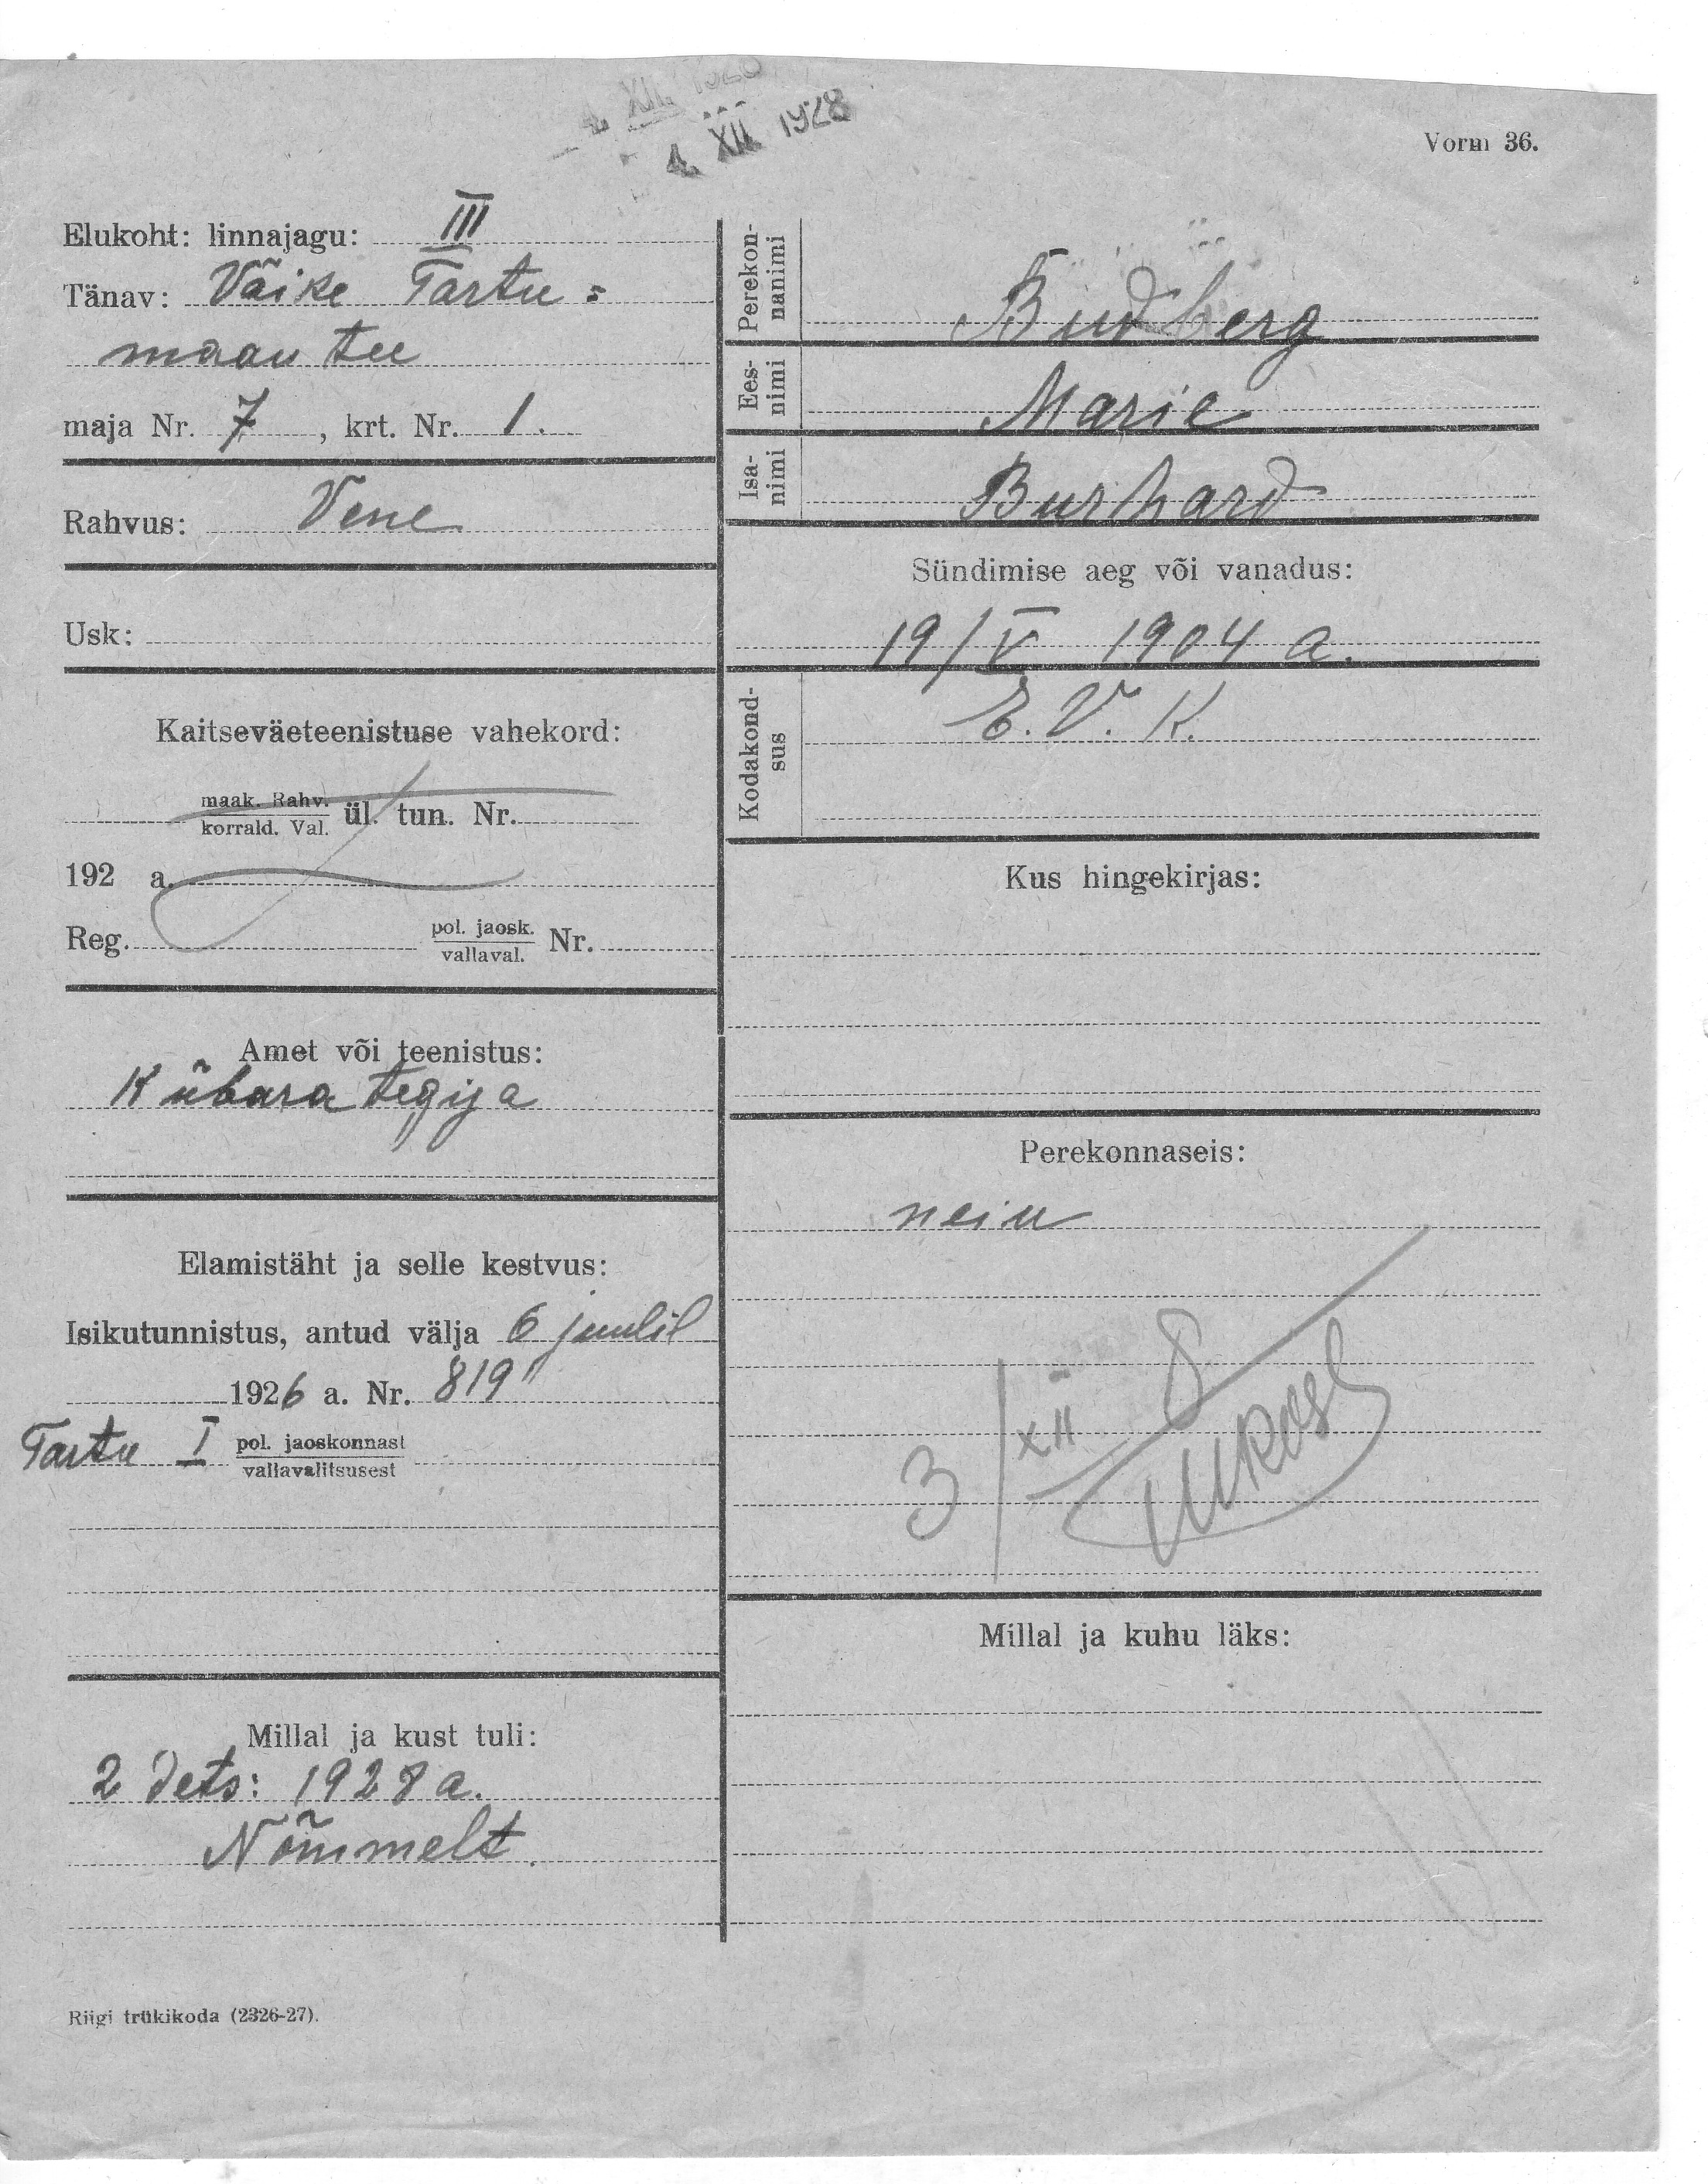 4. XII 1928
Vorm 36.
Elukoht: linnajagu: III
Tänav: Väike Tartu =
maantee
maja Nr. 7, krt. Nr. 1.
Rahvus: Vene
Usk:
Kaitseväeteenistuse vahekord:
maak. Rahv.
korrald. Val. ül. tun. Nr.
192 a.
Reg. pol. jaosk.
vallaval. Nr.
Amet või teenistus:
Kübara tegija
Elamistäht ja selle kestvus:
Isikutunnistus, antud välja 6 juulil
1926 a. Nr. 819
Tartu I pol. jaoskonnast
vallavalitsusest
Millal ja kust tuli:
2 dets: 1928 a.
Nõmmelt.
Riigi trükikoda (2326-27).
Perekon-
nanimi Budberg
Ees-
nimi Marie
Isa-
nimi Burhard
Sündimise aeg või vanadus:
19/V 1904 a.
Kodakond-
sus E. V. K.
Kus hingekirjas:
Perekonnaseis:
neiu
3/XII 8
Millal ja kuhu läks: